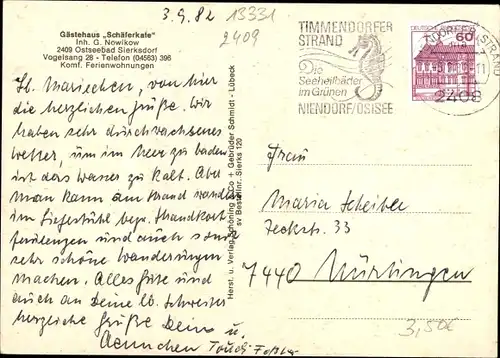 3.9.82 13331
2409
Gästehaus „Schäferkate"
Inh. G. Nowikow
2409 Ostseebad Sierksdorf
Vogelsang 28 - Telefon (04563) 396
Komf. Ferienwohnungen
Lb. Mariechen, von hier
die herzlichen Grüße. Wir
haben sehr durchwachsenes
Wetter, um im Meer zu baden
ist das Wasser zu kalt. Aber
man kann am Strand wandern
im
und auch
sehr schöne Wanderungen
machen. Alles Gute und
auch an Deine lb. Schwester
herzliche Grüße Deine u.
Aennchen
Herst. u. Verlag Schöning & Co + Gebrüder Schmidt - Lübeck
sv Bestellnr. Sierks 120
TIMMENDORFER
STRAND
Seeheilbäder
im Grünen
NIENDORF/OSTSEE
DEUTSCHE
60
2408
Frau
Maria Scheiber
33
7440 Nürtingen
3,50€